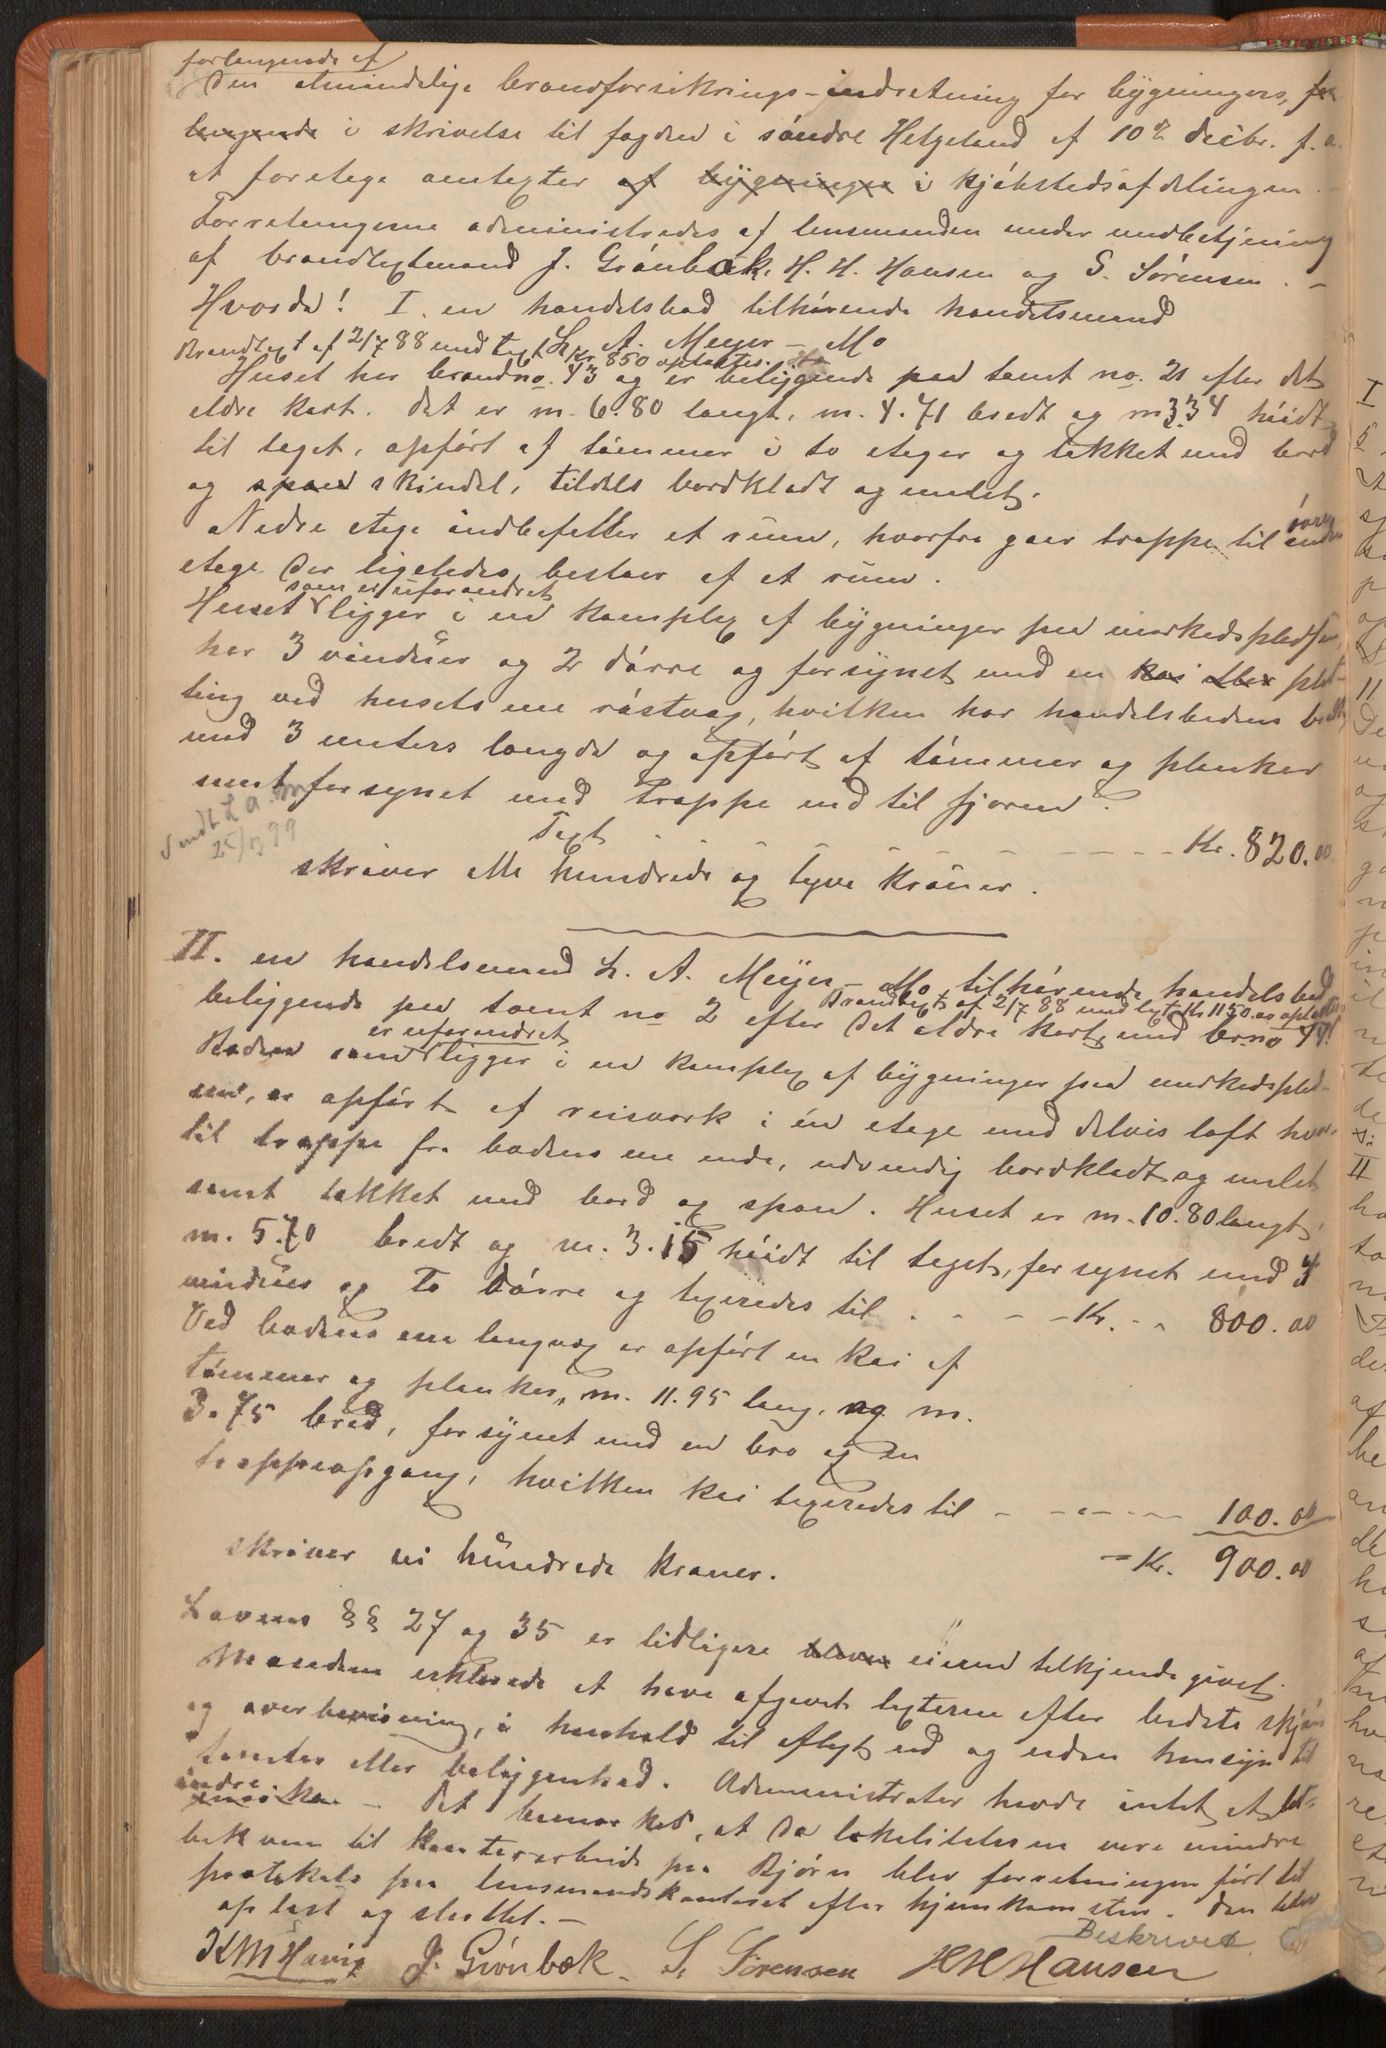 forlangende af
Den almindelige brandforsikrings-indretning for bygninger, for
langende i skrivelse til fogden i søndre Helgeland af 10de decbr. f. a.
at foretage omtaxter af bygninger i kjøbstedsafdelingen.
Forretningerne administredes af lensmanden under medbetjening
af brandtaxtmænd J. Grønbæk, H. H. Hansen og S. Sørensen. –
Hvorda! I. en handelsbod tilhørende handelsmand
L. A. Meyer – Mo
Brandtaxt af 2/7 88 med taxt Kr 850 optoges.
Huset har brandno. 43 og er beliggende paa tomt no. 21 efter det
ældre kart. Det er m. 6.80 langt, m. 4.71 bredt og m 3.34 høidt
til taget, opført af tømmer i to etager og tækket med bord
og spaan skindel, tildels bordklædt og malet.
Nedre etage indbefatter et rum, hvorfra gaar trappe til øvre
etage der ligeledes bestaar af et rum.
som er uforandret
Huset ligger i en komplex af bygninger paa markedspladsen,
har 3 vinduer og 2 dørre og forsynet med en kai eller plat-
ting ved husets ene røstvæg, hvilken har handelsbodens bredde
med 3 meters længde og opført af tømmer og planker
samt forsynet med trappe ned til fjæren.
Sendt L. A. M
25/11 99
Taxt - - - - - - Kr. 820.00
skriver otte hundrede og tyve kroner.
II. en handelsmand L. A. Meyer – Mo tilhørende handelsbod
Brandtaxt af 2/7 88 med taxt Kr 1150.00 optoges
beliggende paa tomt no 2 efter det ældre kart, med br no 44!
er uforandret
Boden som ligger i en komplex af bygninger paa markedsplad-
sen, er opført af reisværk i én etage med delvis loft hvor-
til trappe fra bodens ene ende, udvendig bordklædt og malet
samt tækket med bord og spaan. Huset er m. 10.80 langt,
m. 5.70 bredt og m. 3.15 høidt til taget, forsynet med 4
vinduer og to dørre og taxeredes til - - - Kr. - - 800.00
Ved bodens ene langvæg er opført en kai af
tømmer og planker, m. 11.95 lang, og m.
3.75 bred, forsynet med en bro og en
trappeopgang, hvilken kai taxeredes til - - - - - 100.00
skriver ni hundrede kroner. = Kr. 900.00
Lovens §§ 27 og 35 er tidligere bleven eieren tilkjendegivet.
Mændene erklærede at have afgivet taxterne efter bedste skjøn
og overbevisning, i henhold til aflagt ed og uden hensyn til
tomter eller beliggenhed. Administrator havde intet at be-
indre
mærke. – Det bemærkes, at da lokaliteterne vare mindre
bekvem til kontorarbeide paa Bjørn blev forretningen ført til
protokols paa lensmandskontoret efter hjemkomsten. Den blev
oplæst og sluttet. –
Beskrivet.
J. Grønbæk S. Sørensen H H Hansen